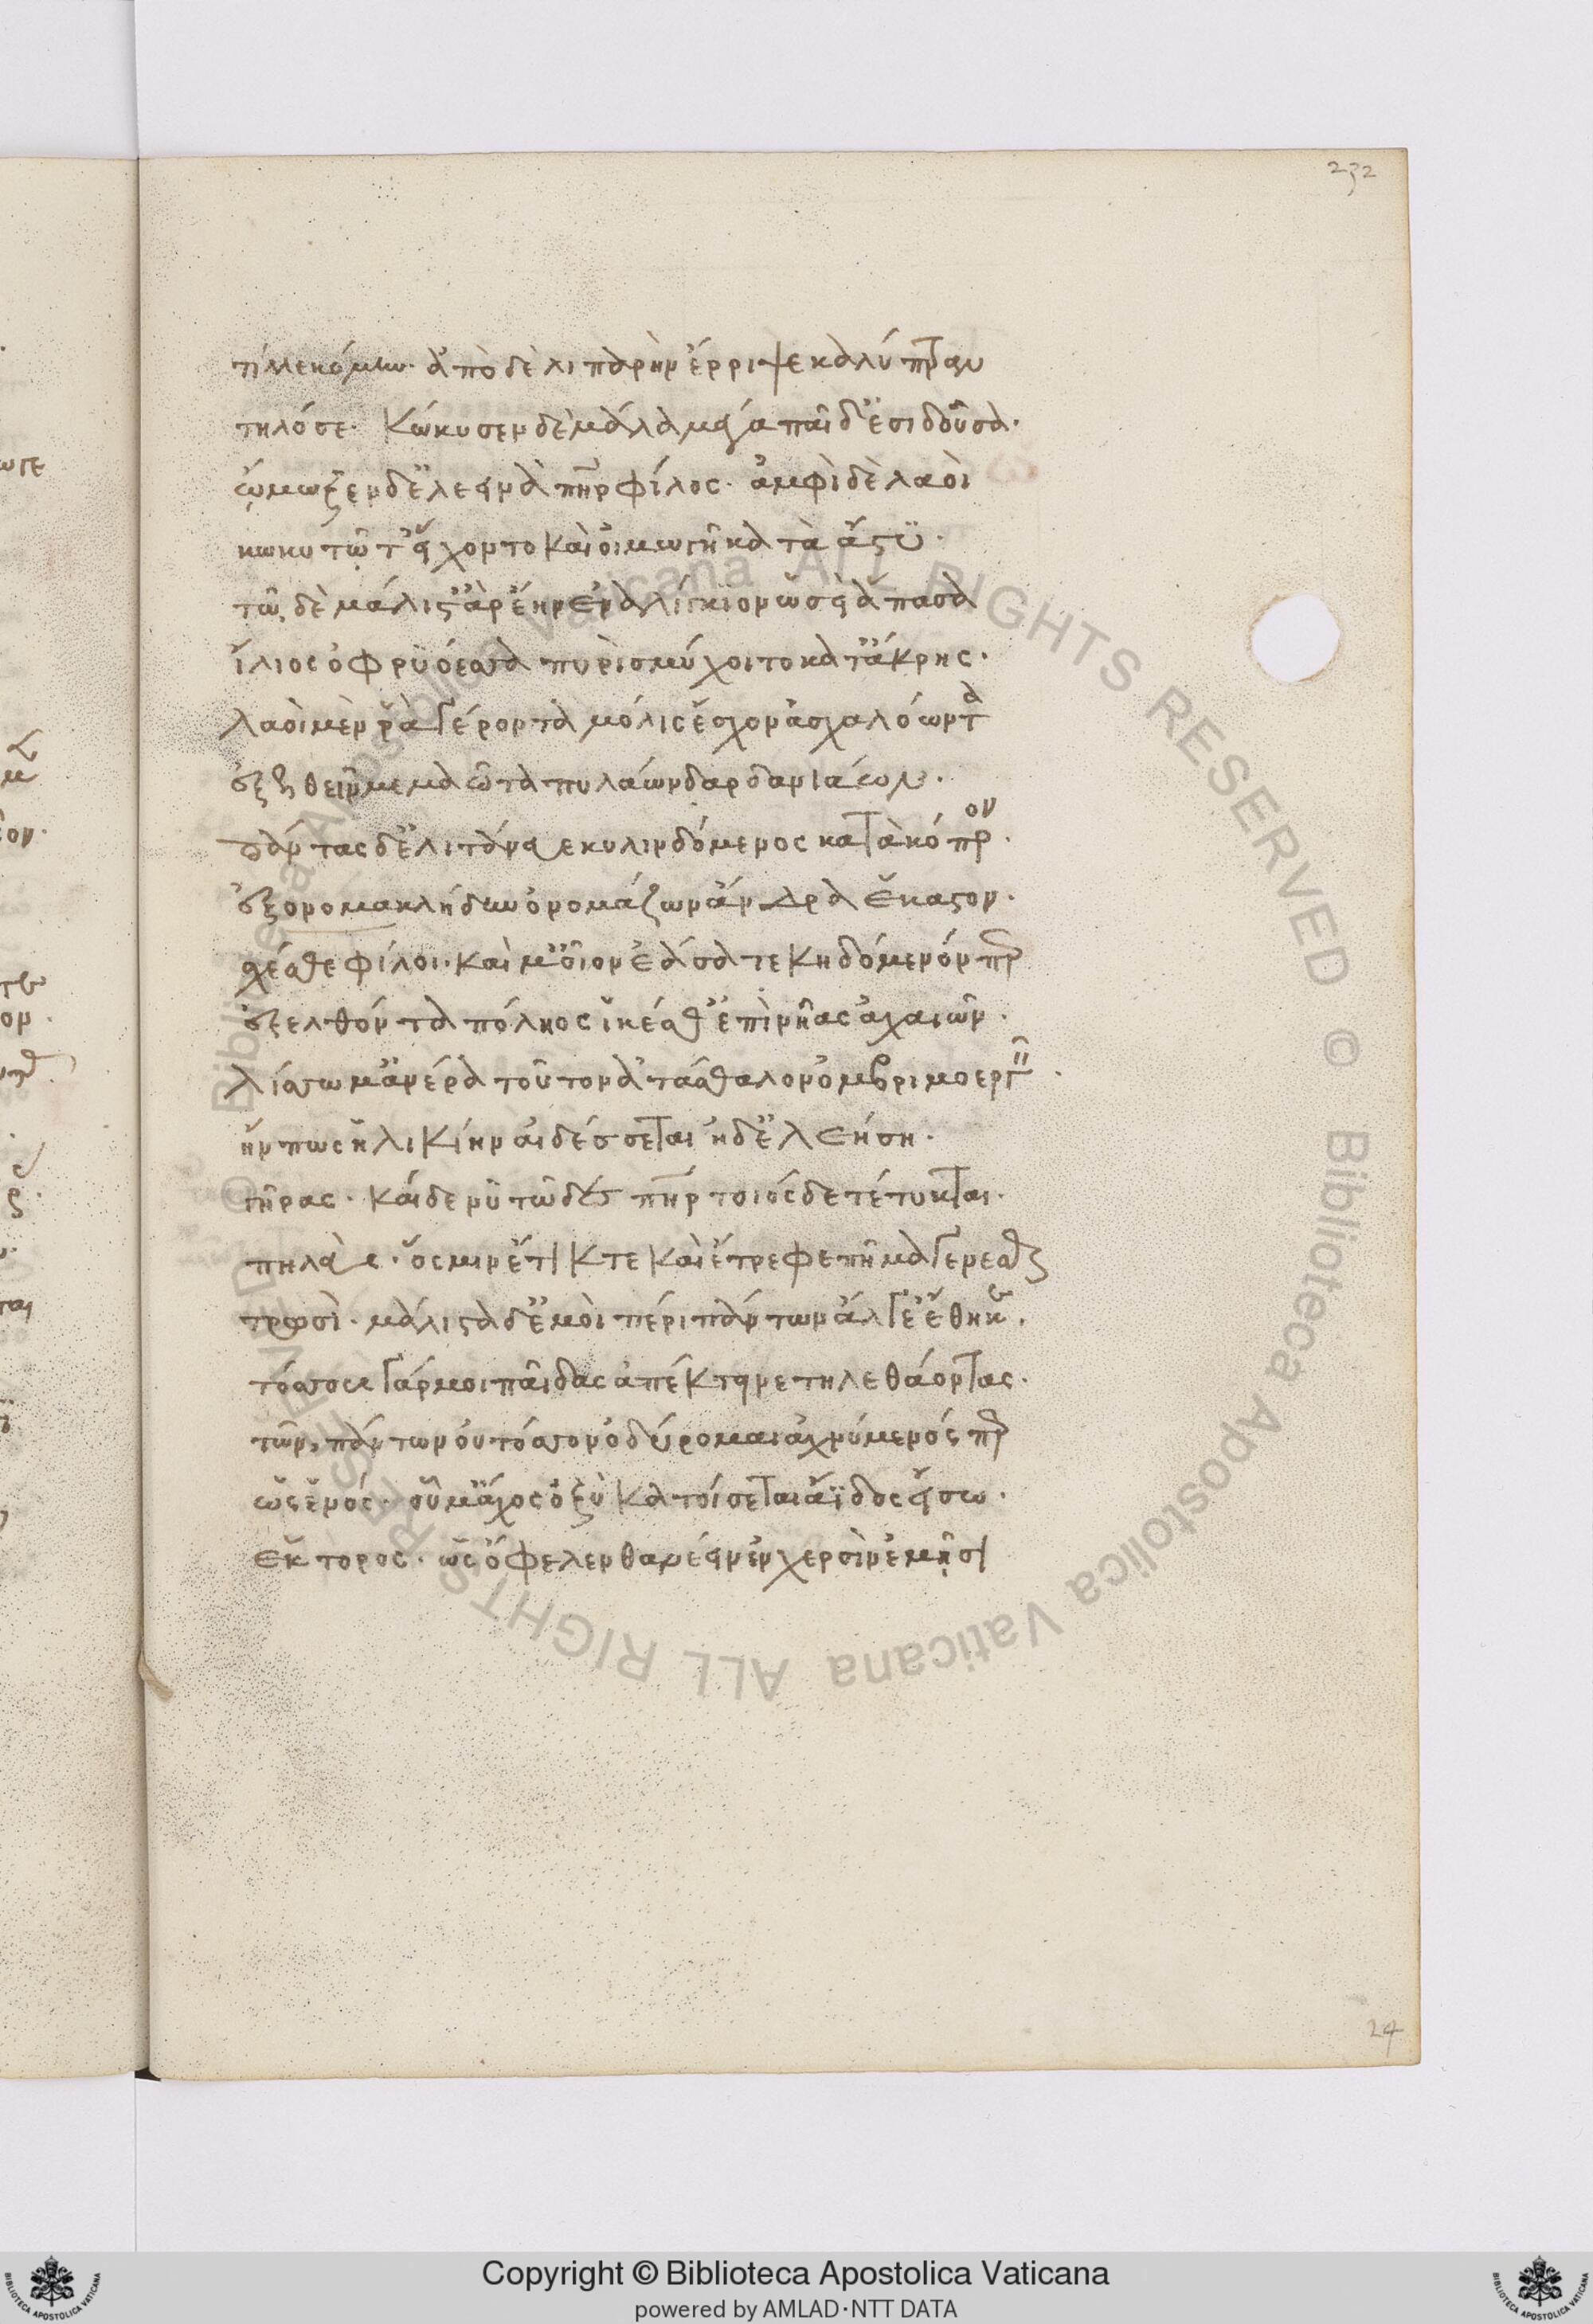 232
τίλλε κόμην. ἀπὸ δὲ λιπαρὴν ἔρριψε καλύπτρην
τηλόσε. κώκυσεν δὲ μάλα μέγα παῖδ' ἐσιδοῦσα.
ᾤμωξεν δ' ἐλεεινὰ πηρ φίλος. ἀμφὶ δὲ λαοὶ
κωκυτῷ τ' εἴχοντο καὶ οἰμωγῆ κατὰ ἄστυ.
τῷ δὲ μάλιστ' ἄρ' ἔην ἐναλίγκιον ὡσεὶ ἅπασα
ἴλιος ὀφρυόεσσα πυρὶ σμύχοιτο κατ' ἄκρης.
λαοὶ μέν ῥα γέροντα μόλις ἔσχον ἀσχαλόωντα
ἐξελθεῖν μεμαῶτα πυλάων δαρδανιάων.
πάντας δ' ἐλιτάνευε κυλινδόμενος κατὰ κόπρον.
ἐξονομακλήδην ὀνομάζων ἄνδρα ἕκαστον.
σχέσθε φίλοι. καί μ' οἶον ἐάσατε κηδόμενόν πρ
ἐξελθόντα πόληος ἱκέσθ' ἐπὶ νῆας ἀχαιῶν.
λίσσωμ' ἀνέρα τοῦτον ἀτάσθαλον ὀμβριμοεργ
ἤν πως ἡλικίην αἰδέσσεται ἠδ' ἐλεήση.
γῆρας. καὶ δέ νυ τῶδε πηρ τοιόσδε τέτυκται.
πηλεὺς. ὅς μιν ἔτικτε καὶ ἔτρεφε πῆμα γενέσθαι
τρωσὶ. μάλιστα δ' ἐμοὶ περὶ πάντων ἄλγε' ἔθηκε.
τόσσους γάρ μοι παῖδας ἀπέκτεινε τηλεθάοντας.
τῶν πάντων οὐ τόσσον ὀδύρομαι ἀχνύμενός πρ
ὡς ἑνός. οὗ μ' ἄχος ὀξὺ κατοίσεται ἄϊδος εἴσω.
ἕκτορος. ὡς ὄφελεν θανέειν ἐν χερσὶν ἐμῇσι
24
© Biblioteca Apostolica Vaticana ALL RIGHTS RESERVED © Biblioteca Apostolica Vaticana ALL RIGHTS RESERVED
Copyright © Biblioteca Apostolica Vaticana
powered by AMLAD·NTT DATA